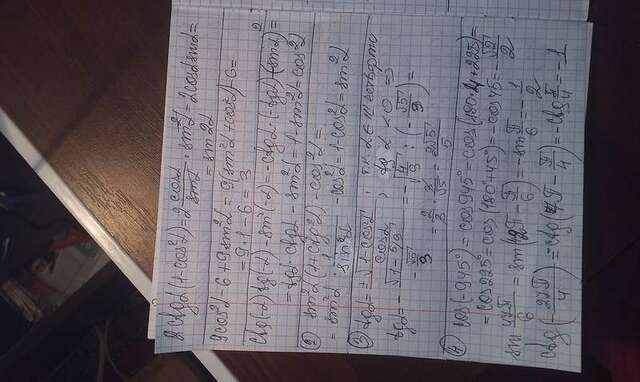 2 ctgα(1-cos²α) = 2 cosα/sinα · sin²α = 2cosα sinα =
= sin2α
9cos²α - 6 + 9sin²α = 9(sin²α + cos²α) - 6 =
= 9·1 - 6 = 3
ctg(-α) tg(-α) - sin²(-α) = -ctgα · (-tgα) - (sinα)² =
= tgα · ctgα - sin²α = 1 - sin²α = cos²α
② sin²α(1+ctg²α) - cos²α =
= sin²α · 1/sin²α - cos²α = 1 - cos²α = sin²α
③ tgα = ±√(1-cos²α)/cosα ; т.к α ∈ II четверти
tgα < 0 =>
tgα = -√(1-5/9) : (-√5/3) =
= 2/3 · 3/√5 = 2√5/5
④ cos(-945°) = cos945° = cos(180·4+225) =
= cos225 = cos(180°+45°) = -cos45 = -√2/2
sin 47π/6 = sin(8π - π/6) = -sin π/6 = -1/2
ctg(-25π/4) = ctg(π - π/4) = -ctg π/4 = -1